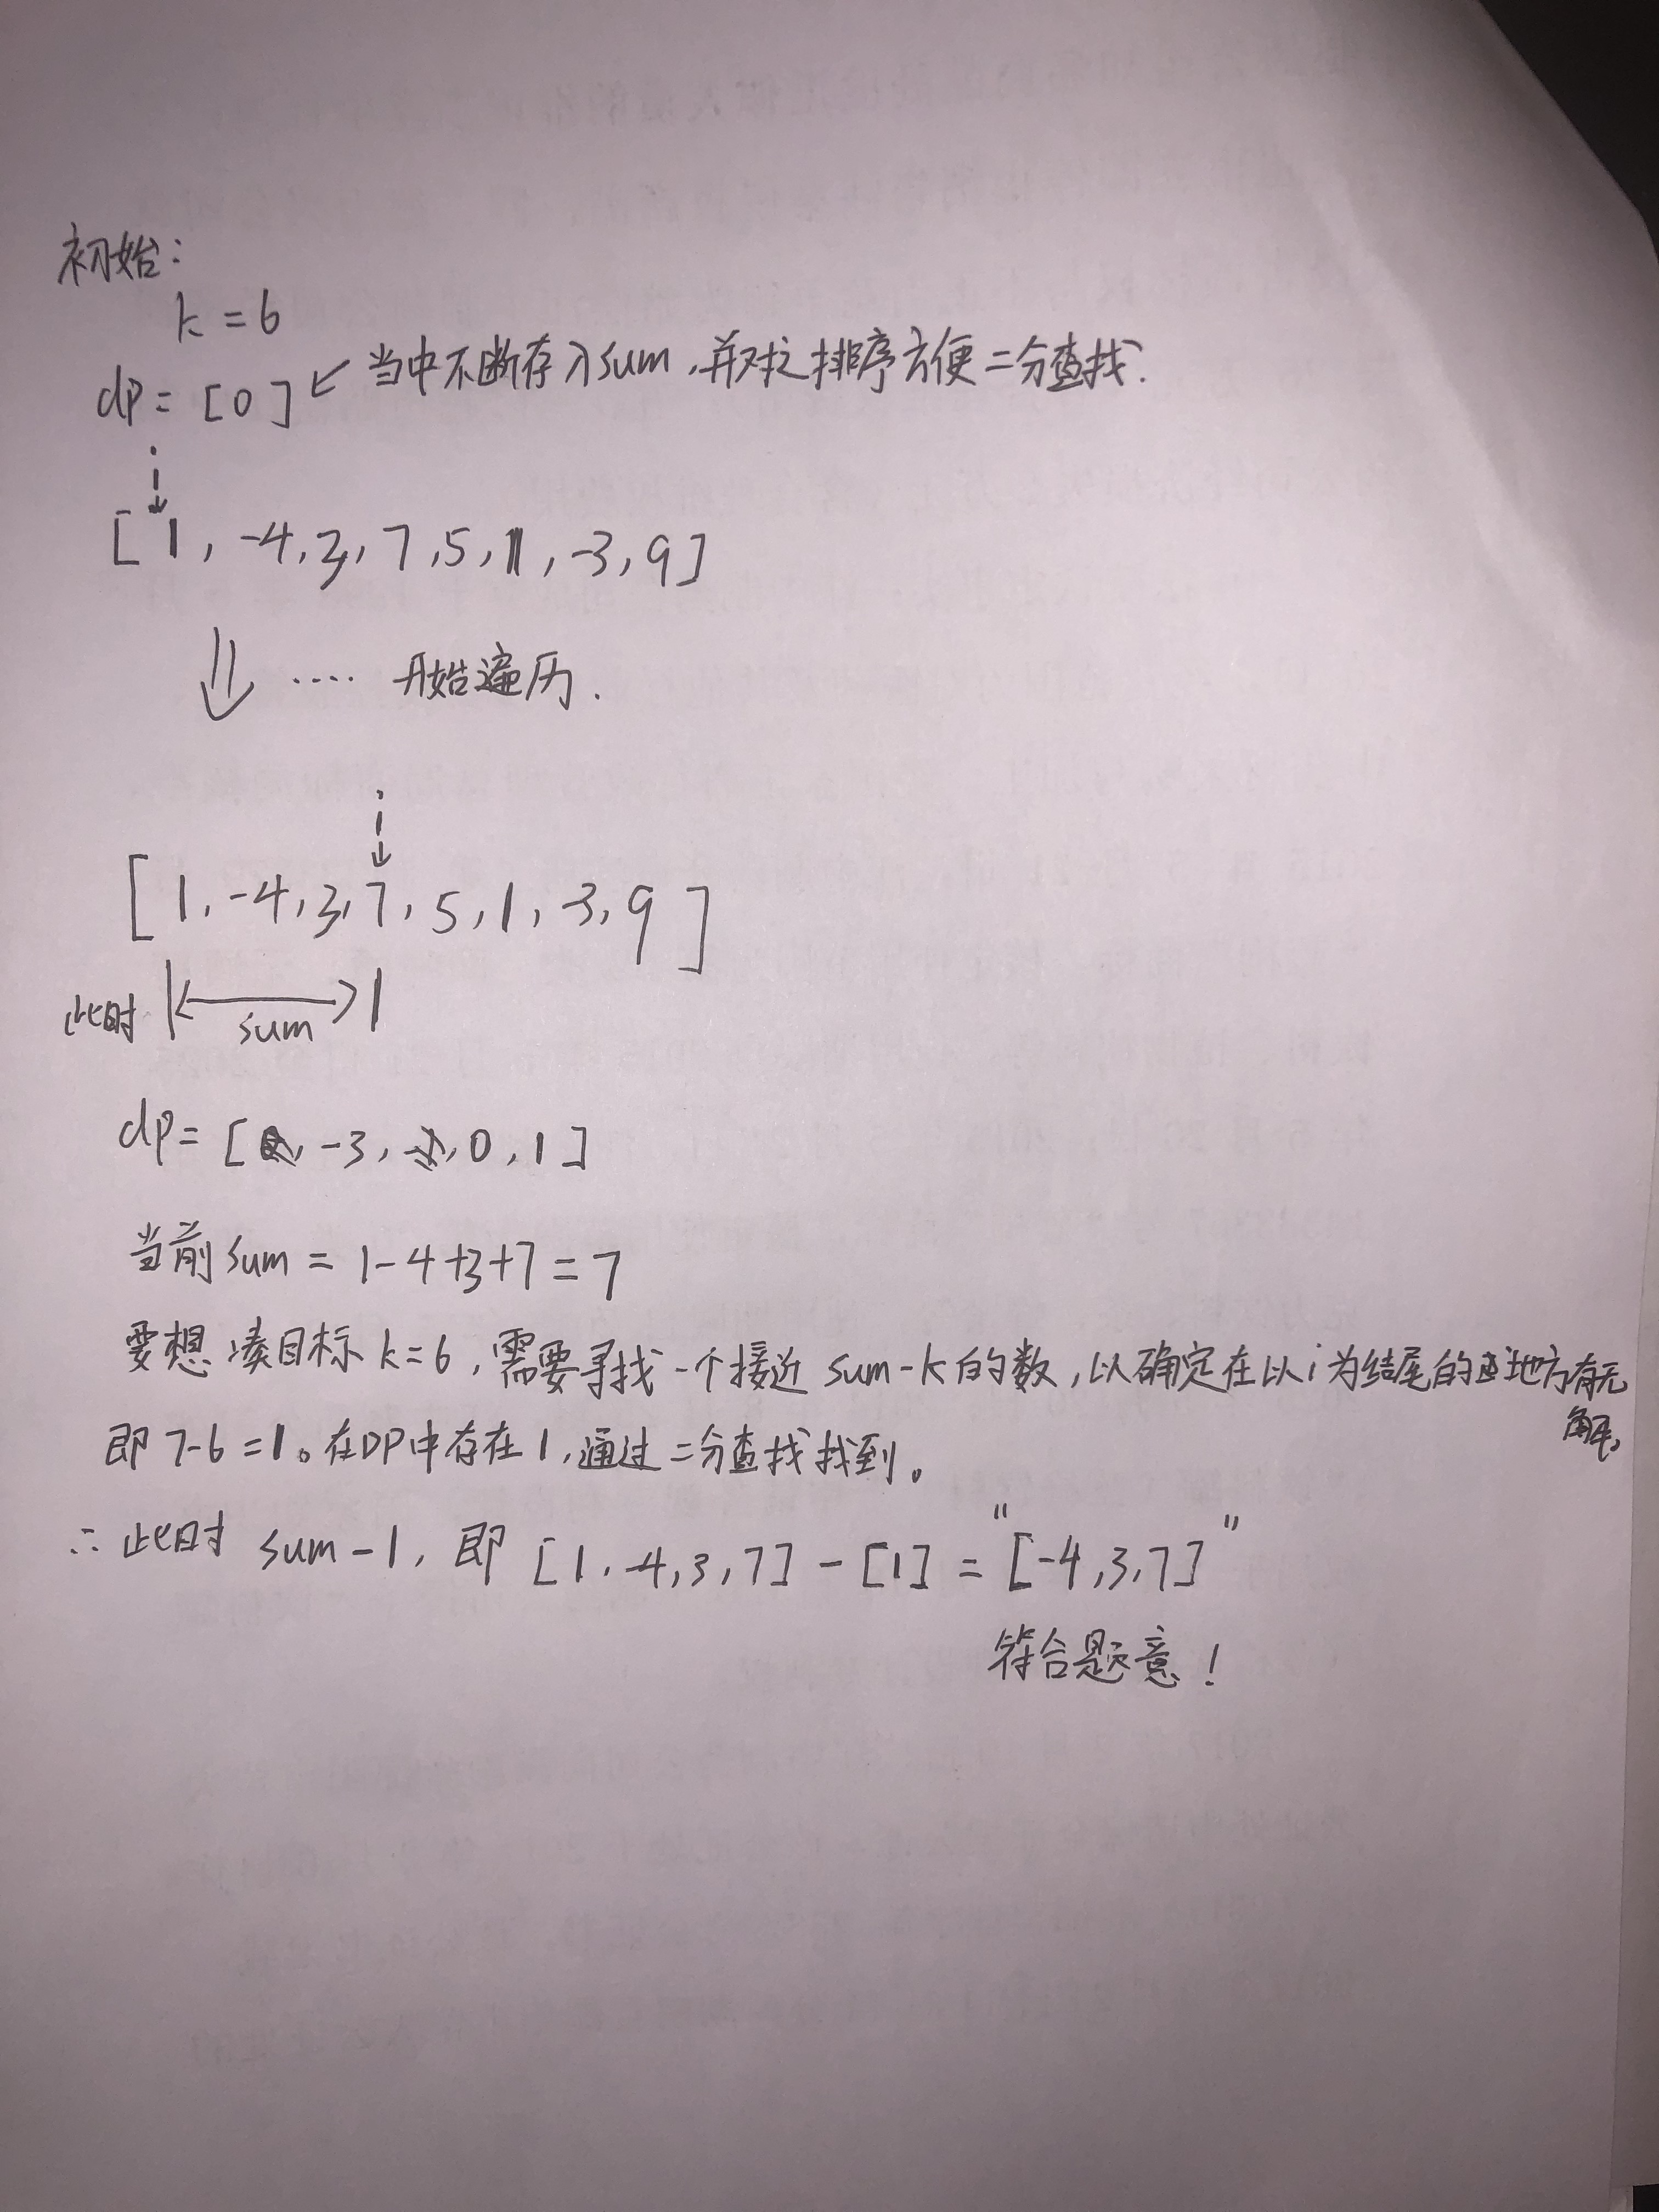 初始：
k = 6
dp = [0] ← 当中不断存入sum，并对之排序方便二分查找．
i
[1, -4, 3, 7, 5, 1, -3, 9]
⇓ ···· 开始遍历．
i
[1, -4, 3, 7, 5, 1, -3, 9]
此时 |<——>|
sum
dp = [-3, 0, 1]
当前sum = 1-4+3+7 = 7
要想凑目标k=6，需要寻找一个接近 sum-k的数，以确定在以i为结尾的地方有无
解。
即 7-6=1。在DP中存在1，通过二分查找找到。
∴ 此时 sum-1，即 [1, -4, 3, 7] - [1] = "[-4, 3, 7]"
符合题意！